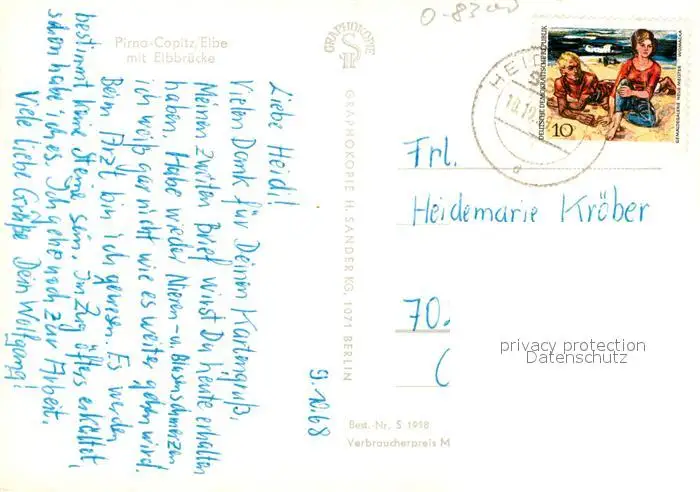 Pirna-Copitz/Elbe
mit Elbbrücke
GRAPHOKOPIE
GRAPHOKOPIE H. SANDER KG, 1071 BERLIN
Best.-Nr. S 1918
Verbraucherpreis M
9.10.68
Liebe Heidi!
Vielen Dank für Deinen Kartengruß,
Meinen zweiten Brief wirst Du heute erhalten
haben. Habe wieder Nieren- u. Blasenschmerzen
ich weiß gar nicht wie es weiter gehen wird.
Beim Arzt bin ich gewesen. Es werden
bestimmt keine Steine sein. Im Zug öfters erkältet,
schon habe ich es. Ich gehe noch zur Arbeit.
Viele liebe Grüße Dein Wolfgang!
0-83
DEUTSCHE DEMOKRATISCHE REPUBLIK
10
GEMÄLDEGALERIE NEUE MEISTER
WOMACKA
HEID
d
Frl.
Heidemarie Kröber
70
privacy protection
Datenschutz